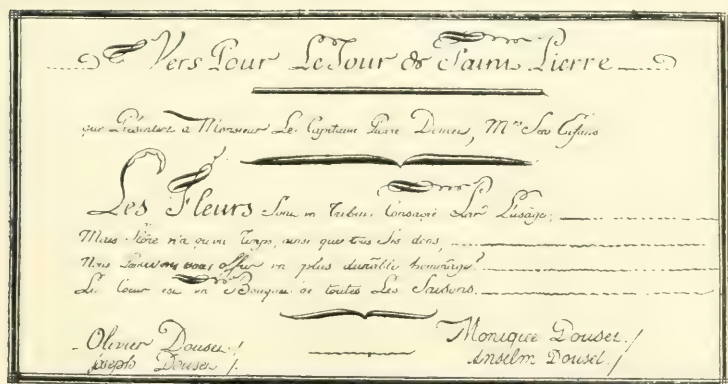 Vers Pour Le Jour de Saint Pierre
Présenter a Monsieur Le Capitaine Pierre
Les Fleurs Sont un Tribut Consacré Par L'usage,
Mais Flore n'a qu'un Temps, ainsi que tous Ses dons,
Nous vous offrir un plus durable hommage?
Le Coeur est un Bouquet de toutes Les Saisons.
Olivier Douset
Joseph Douset
Monique Douset
Anselm Douset